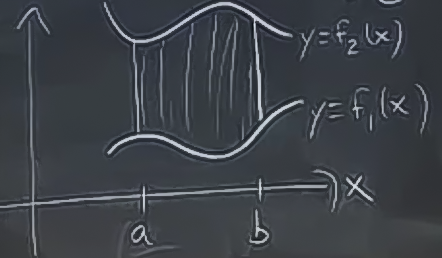 y=f₂(x)
y=f₁(x)
x
a b